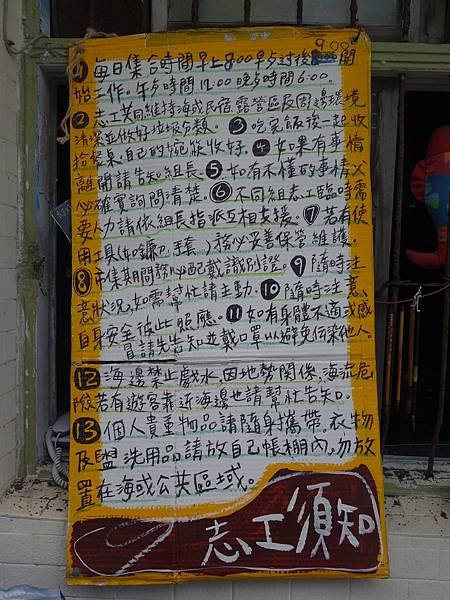 ①每日集合時間早上8:00早点过後9:00開
始工作。午夕時間12:00晚夕時間6:00。
②志工共同維持海或民宿露營區及周邊環境
清潔並做好垃圾分類。③吃完飯後一起收
拾餐桌自己的婉筷收好。④如果有事情
離開請告知組長。⑤如有不懂的事情
必確實詢問清楚。⑥不同組志工臨時需
要人力請依組長指派互相支援。⑦若有使
用工具(如鐮刀手套)務必妥善保管維護。
⑧市集期間務必配戴識別證。⑨隨時注
意狀況,如需幫忙請主動。⑩隨時注意
自身安全彼此照應。⑪如有身體不適或感
冒請先告知並戴口罩以避免伝染他人。
⑫海邊禁止戲水,因地勢関係,海流危
險若有遊客靠近海邊也請幫忙告知。
⑬個人貴重物品請隨身攜帶。衣物
及盥洗用品請放自己帳棚內,勿放
置在海或公共區域。
志工須知